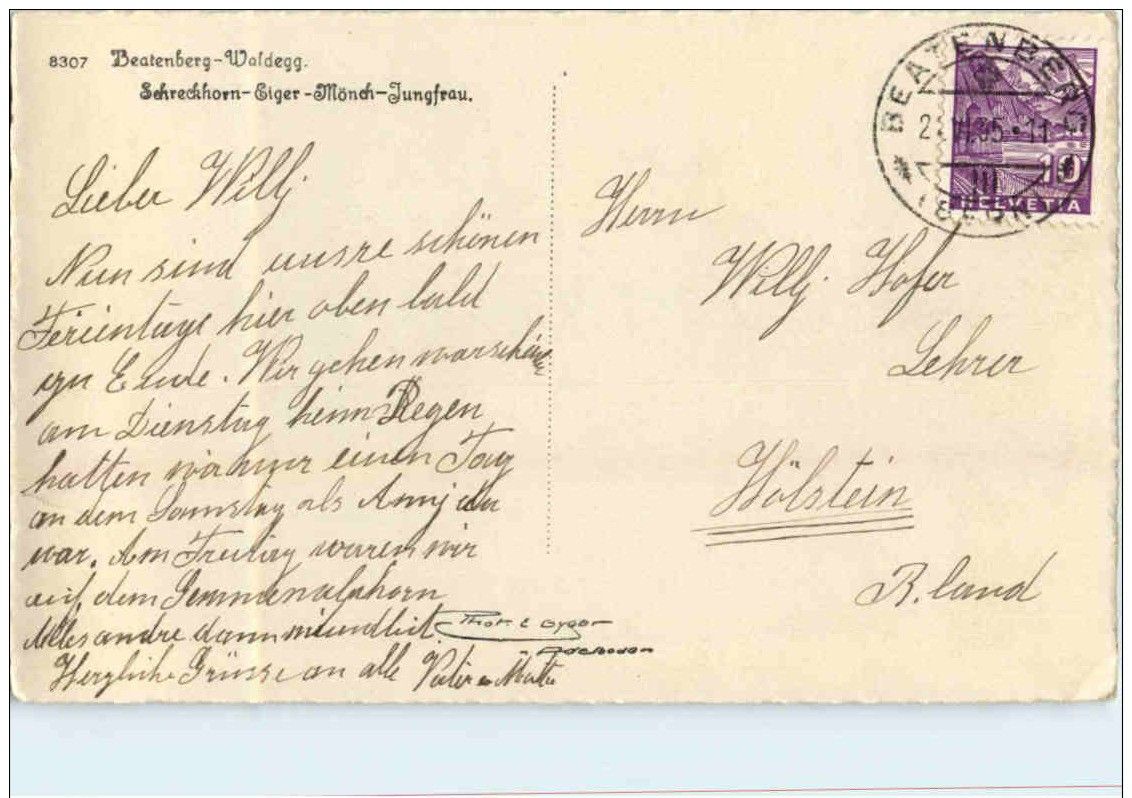 8307 Beatenberg-Waldegg.
Schreckhorn-Eiger-Mönch-Jungfrau.
Lieber Willj
Nun sind unsre schönen
Ferientage hier oben bald
zu Ende. Wir gehen warschein
am Dienstag heim Regen
hatten wir nur einen Tag
an dem Samstag als Amj da
war. Am Freitag waren wir
auf dem Gemmenalphorn
Alles andre dann mündlich.
Herzliche Grüsse an alle Vater u Mutter
Phot. E Gyger
Adelboden
BEATENBERG
35 • 11
10
HELVETIA
Herrn
Willj Hofer
Lehrer
Hölstein
B. land